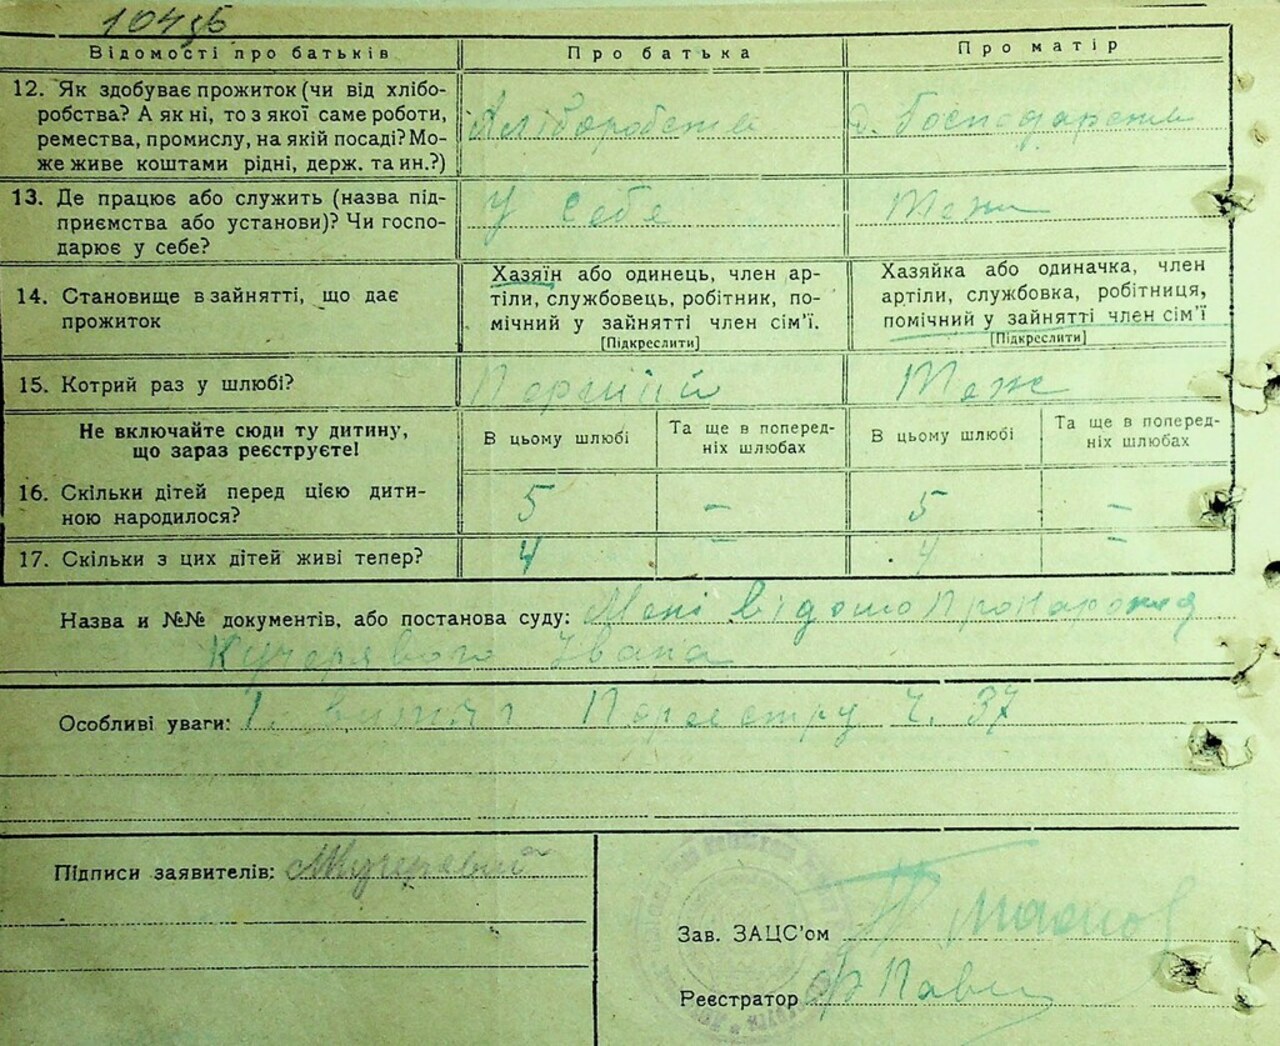 104зб
Відомості про батьків
Про батька
Про матір
12. Як здобуває прожиток (чи від хлібо-
робства? А як ні, то з якої саме роботи,
ремества, промислу, на якій посаді? Мо-
же живе коштами рідні, держ. та ин.?)
Хліборобства
д. Господарства
13. Де працює або служить (назва під-
приємства або установи)? Чи госпо-
дарює у себе?
У себе
14. Становище в зайнятті, що дає
прожиток
Хазяїн або одинець, член ар-
тіли, службовець, робітник, по-
мічний у зайнятті член сім'ї.
[Підкреслити]
Хазяйка або одиначка, член
артіли, службовка, робітниця,
помічний у зайнятті член сім'ї
[Підкреслити]
15. Котрий раз у шлюбі?
Перший
Теж
Не включайте сюди ту дитину,
що зараз реєструєте!
В цьому шлюбі
Та ще в поперед-
ніх шлюбах
В цьому шлюбі
Та ще в поперед-
ніх шлюбах
16. Скільки дітей перед цією дити-
ною народилося?
5 – 5 –
17. Скільки з цих дітей живі тепер?
4 – 4 –
Назва и №№ документів, або постанова суду: Мені відомо про
Кучерявого Івана
Особливі уваги: ч. 37
Підписи заявителів: Кучерявий
Зав. ЗАЦС'ом
Реєстратор